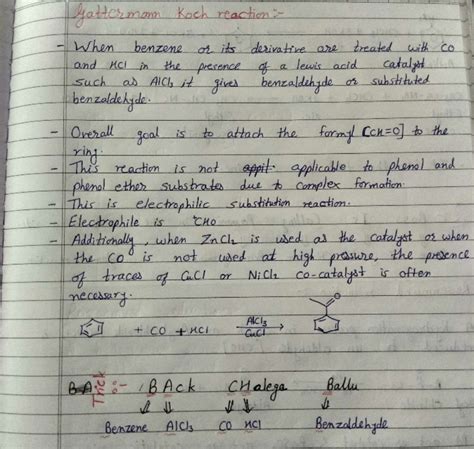 Gattermann Koch reaction:-
- When benzene or its derivative are treated with CO
and HCl in the presence of a lewis acid catalyst
such as AlCl3 it gives benzaldehyde or substituted
benzaldehyde.
- Overall goal is to attach the formyl [CH=O] to the
ring.
- This reaction is not appli applicable to phenol and
phenol ether substrates due to complex formation.
- This is electrophilic substitution reaction.
- Electrophile is CHO
- Additionally, when ZnCl2 is used as the catalyst or when
the CO is not used at high pressure, the presence
of traces of CuCl or NiCl2 co-catalyst is often
necessary.
+ CO + HCl AlCl3 CuCl → O
BA Trick :- BAck CHalega Ballu
Benzene AlCl3 CO HCl Benzaldehyde